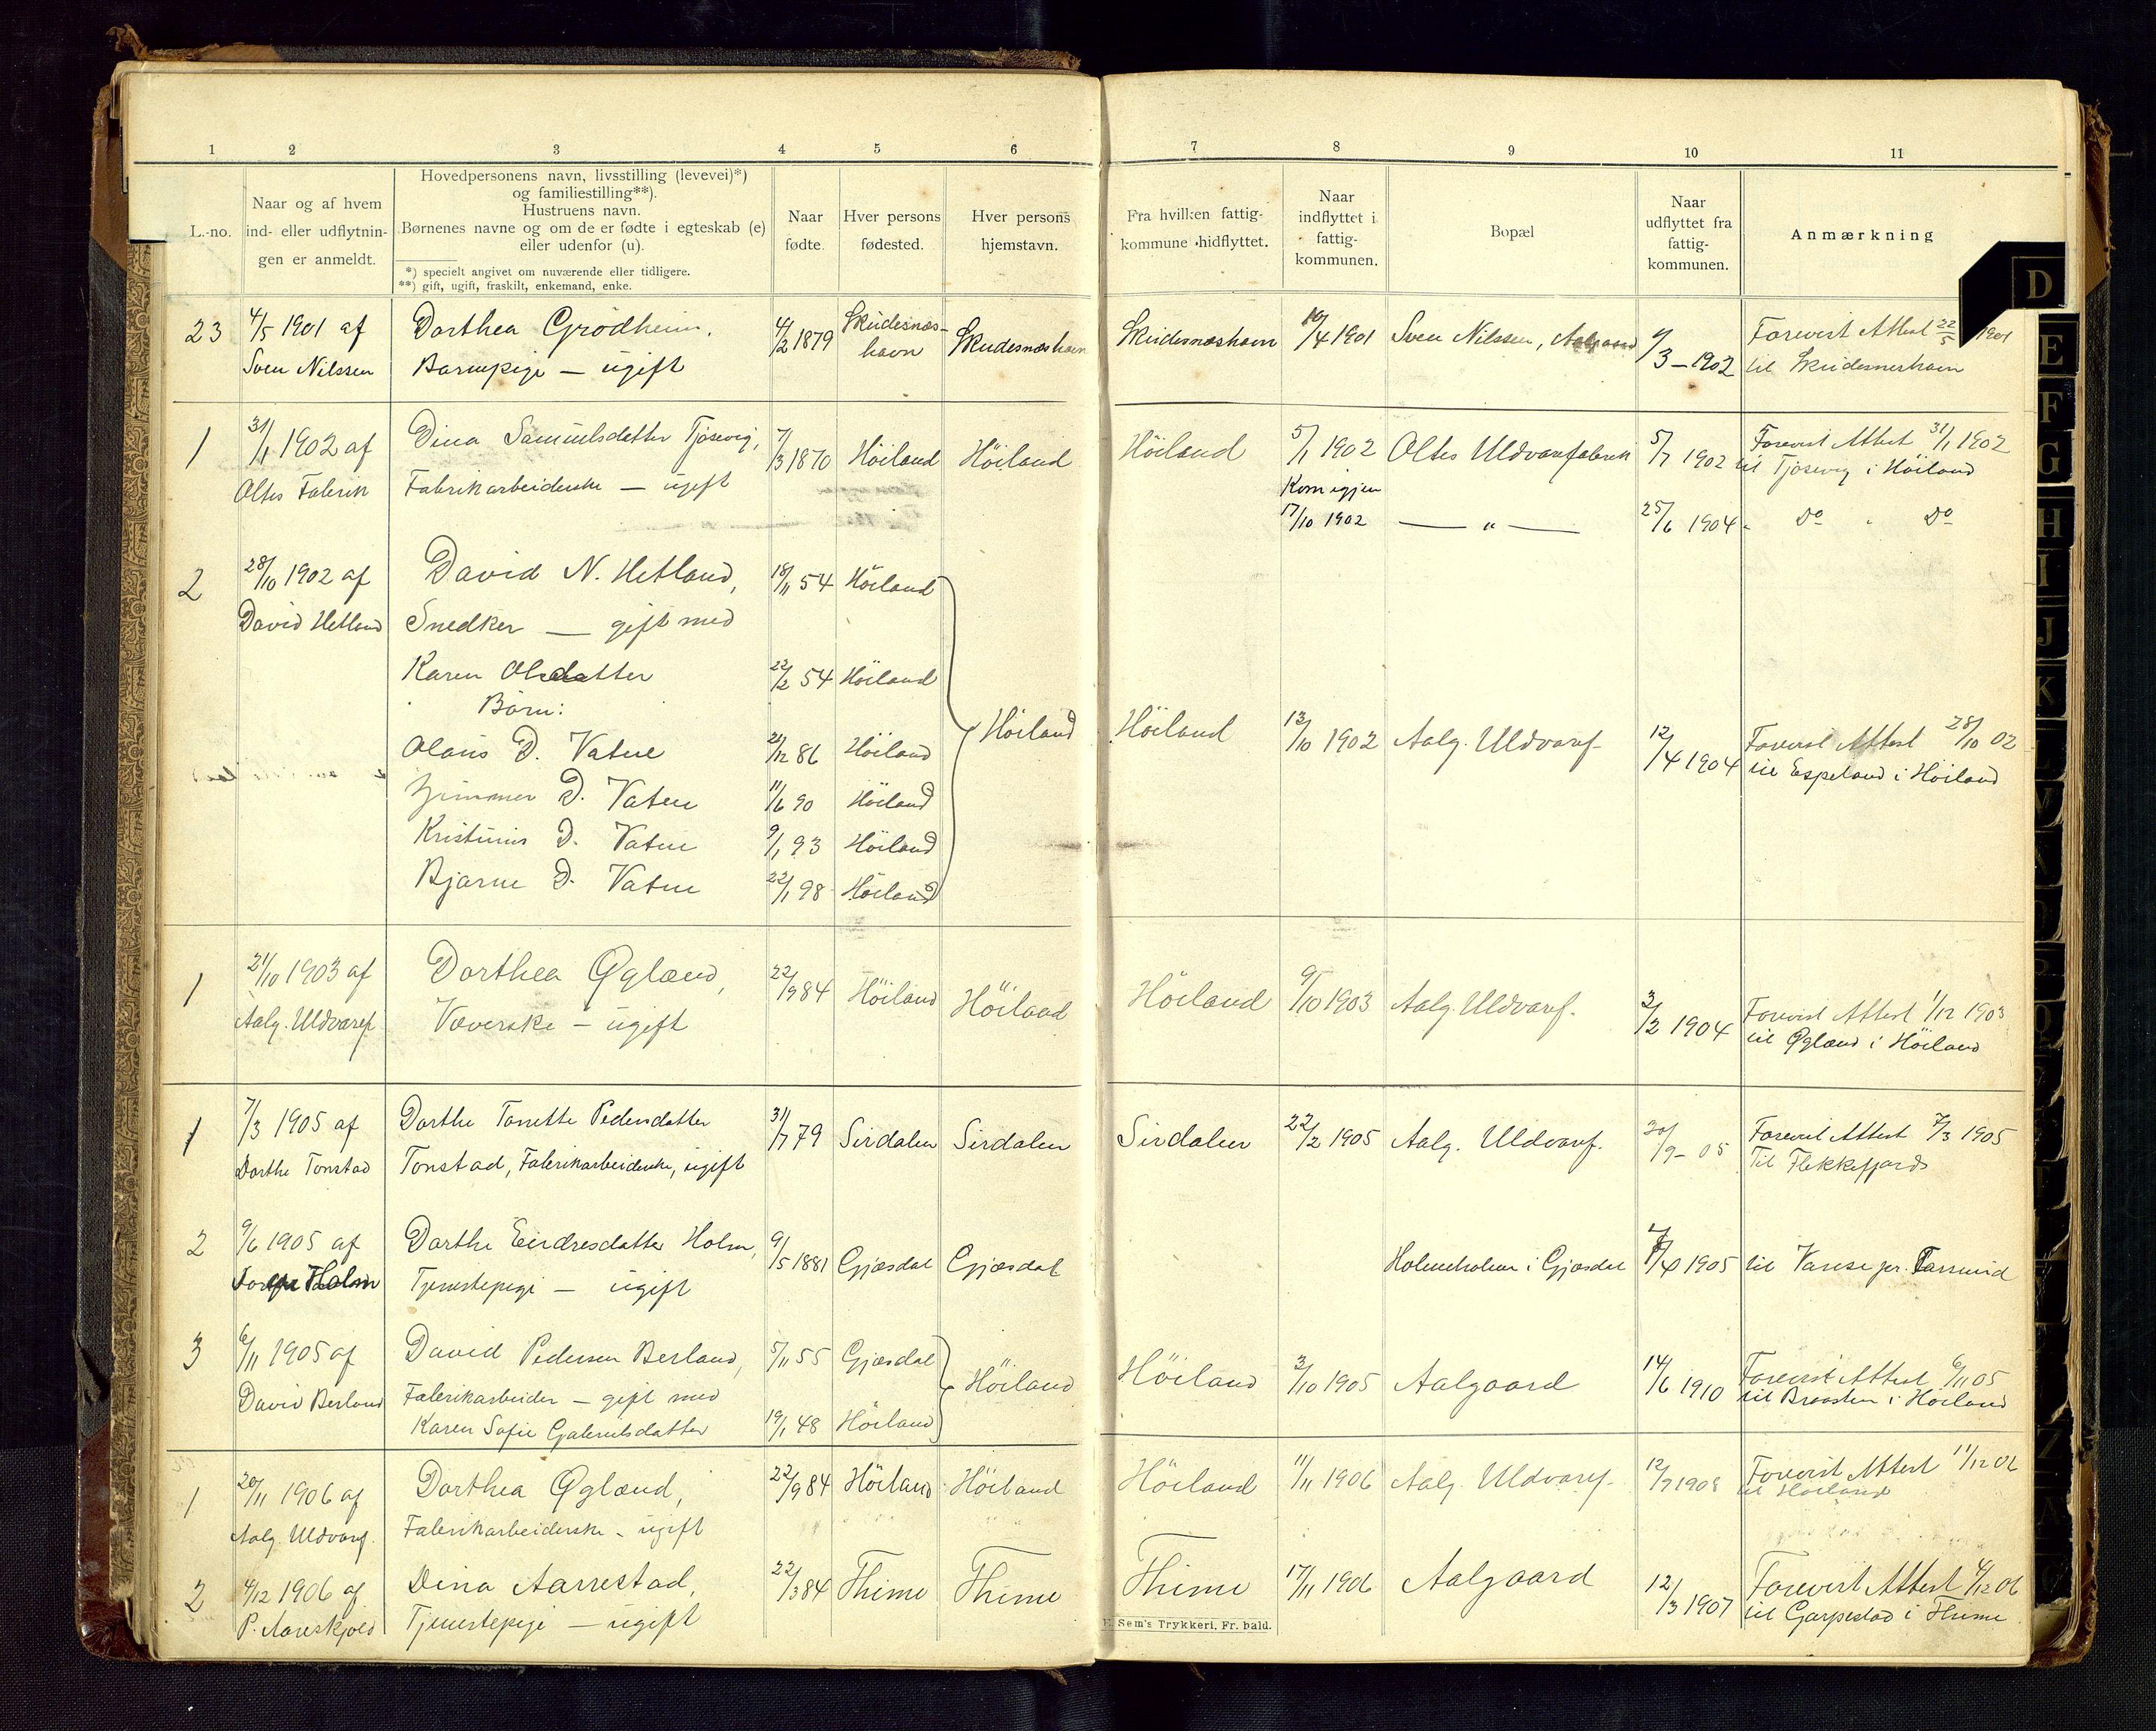 1 2 3 4 5 6 7 8 9 10 11
L.-no.
Naar og af hvem
ind- eller udflytnin-
gen er anmeldt.
Hovedpersonens navn, livsstilling (levevei)*)
og familiestilling**).
Hustruens navn.
Børnenes navne og om de er fødte i egteskab (e)
eller udenfor (u).
*) specielt angivet om nuværende eller tidligere.
**) gift, ugift, fraskilt, enkemand, enke.
Naar
fødte.
Hver persons
fødested.
Hver persons
hjemstavn.
Fra hvilken fattig-
kommune hidflyttet.
Naar
indflyttet i
fattig-
kommunen.
Bopæl
Naar
udflyttet fra
fattig-
kommunen.
Anmærkning
D
E
F
G
H
I
J
K
23 4/5 1901 af Dorthea Grødheim, 4/2 1879 Skudesnæs- Skudesnæshavn Skudesnæshavn /4 1901 Sven Nilssen, Aalgaard 9/3 – 1902 Forevist Attest 22/5 1901
Sven Nilssen Barnepige – ugift havn til Skudesneshavn
1 31/1 1902 af Dina Samuelsdatter Tjosevig, 7/3 1870 Höiland Höiland Höiland 5/1 1902 Oltes Uldvarefabrik 5/7 1902 Forevist Attest 31/1 1902
Oltes Fabrik Fabrikarbeiderske – ugift Kom igjen til Tjosevig i Höiland
17/10 1902 — " — 25/6 1904 " Do " Do
2 28/10 1902 af David N. Hetland, 18/11 54 Höiland
David Hetland Snedker — gift med
Karen Olsdatter 22/2 54 Höiland
Børn:
Olaus D. Vatne 21/12 86 Höiland Höiland Höiland 13/10 1902 Aalg. Uldvaref. 12/4 1904 Forevist Attest 28/10 02
til Espeland i Höiland
D. Vatne 11/6 90 Höiland
Kristinius D. Vatne 9/1 93 Höiland
Bjarne D. Vatne 22/1 98 Höiland
1 21/10 1903 af Dorthea Øglænd, 22/9 84 Höiland Höiland Höiland 9/10 1903 Aalg. Uldvaref. 3/2 1904 Forevist Attest 1/12 1903
Aalg. Uldvaref. Væverske – ugift til Øglænd i Höiland
1 7/3 1905 af Dorthe Tonette Pedersdatter 31/7 79 Sirdalen Sirdalen Sirdalen 22/2 1905 Aalg. Uldvaref. 30/9 – 05 Forevist Attest 7/3 1905
Dorthe Tonstad Tonstad, Fabrikarbeiderske, ugift Til Flekkefjord
2 9/6 1905 af Dorthe Eindresdatter Holm, 9/5 1881 Gjæsdal Gjæsdal Holmeholm i Gjæsdal /4 1905 til Vanse pr. Farsund
Holm Tjenestepige – ugift
3 6/11 1905 af David Pedersen Berland, 5/11 55 Gjæsdal Höiland Höiland 3/10 1905 Aalgaard 14/6 1910 Forevist Attest 6/11 05
David Berland Fabrikarbeider – gift med til Braasten i Höiland
Karen Sofie Gabrielsdatter 19/1 48 Höiland
1 20/11 1906 af Dorthea Øglænd, 22/9 84 Höiland Höiland Höiland 11/11 1906 Aalg. Uldvaref. 12/9 1908 Forevist Attest 11/12 06
Aalg. Uldvaref. Fabrikarbeiderske – ugift til Höiland
2 4/12 1906 af Dina Aarrestad, 22/3 84 Thime Thime Thime 17/11 1906 Aalgaard 12/3 1907 Forevist Attest 4/12 06
P. Aareskjold Tjenestepige – ugift til Garpestad i Thime
Sem's Trykkeri, Fr. hald.